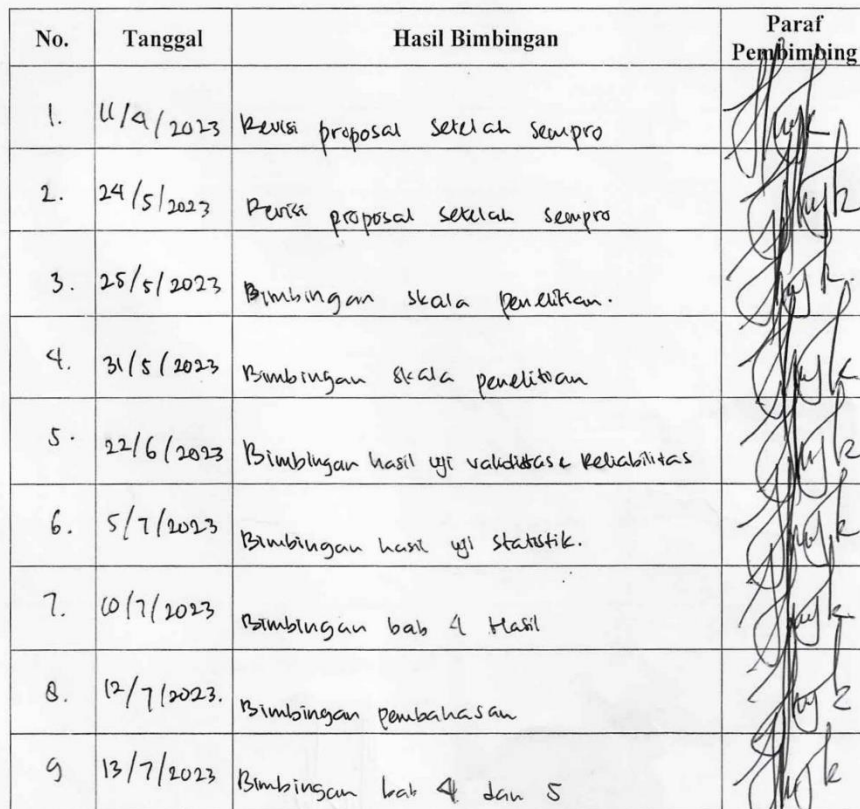 No. Tanggal Hasil Bimbingan Paraf Pembimbing
1. 11/4/2023 Revisi proposal setelah sempro
2. 24/5/2023 Revisi proposal setelah sempro
3. 25/5/2023 Bimbingan skala penelitian.
4. 31/5/2023 Bimbingan skala penelitian
5. 22/6/2023 Bimbingan hasil uji validitas & Reliabilitas
6. 5/7/2023 Bimbingan hasil uji statistik.
7. 10/7/2023 Bimbingan bab 4 Hasil
8. 12/7/2023. Bimbingan pembahasan
9 13/7/2023 Bimbingan bab 4 dan 5